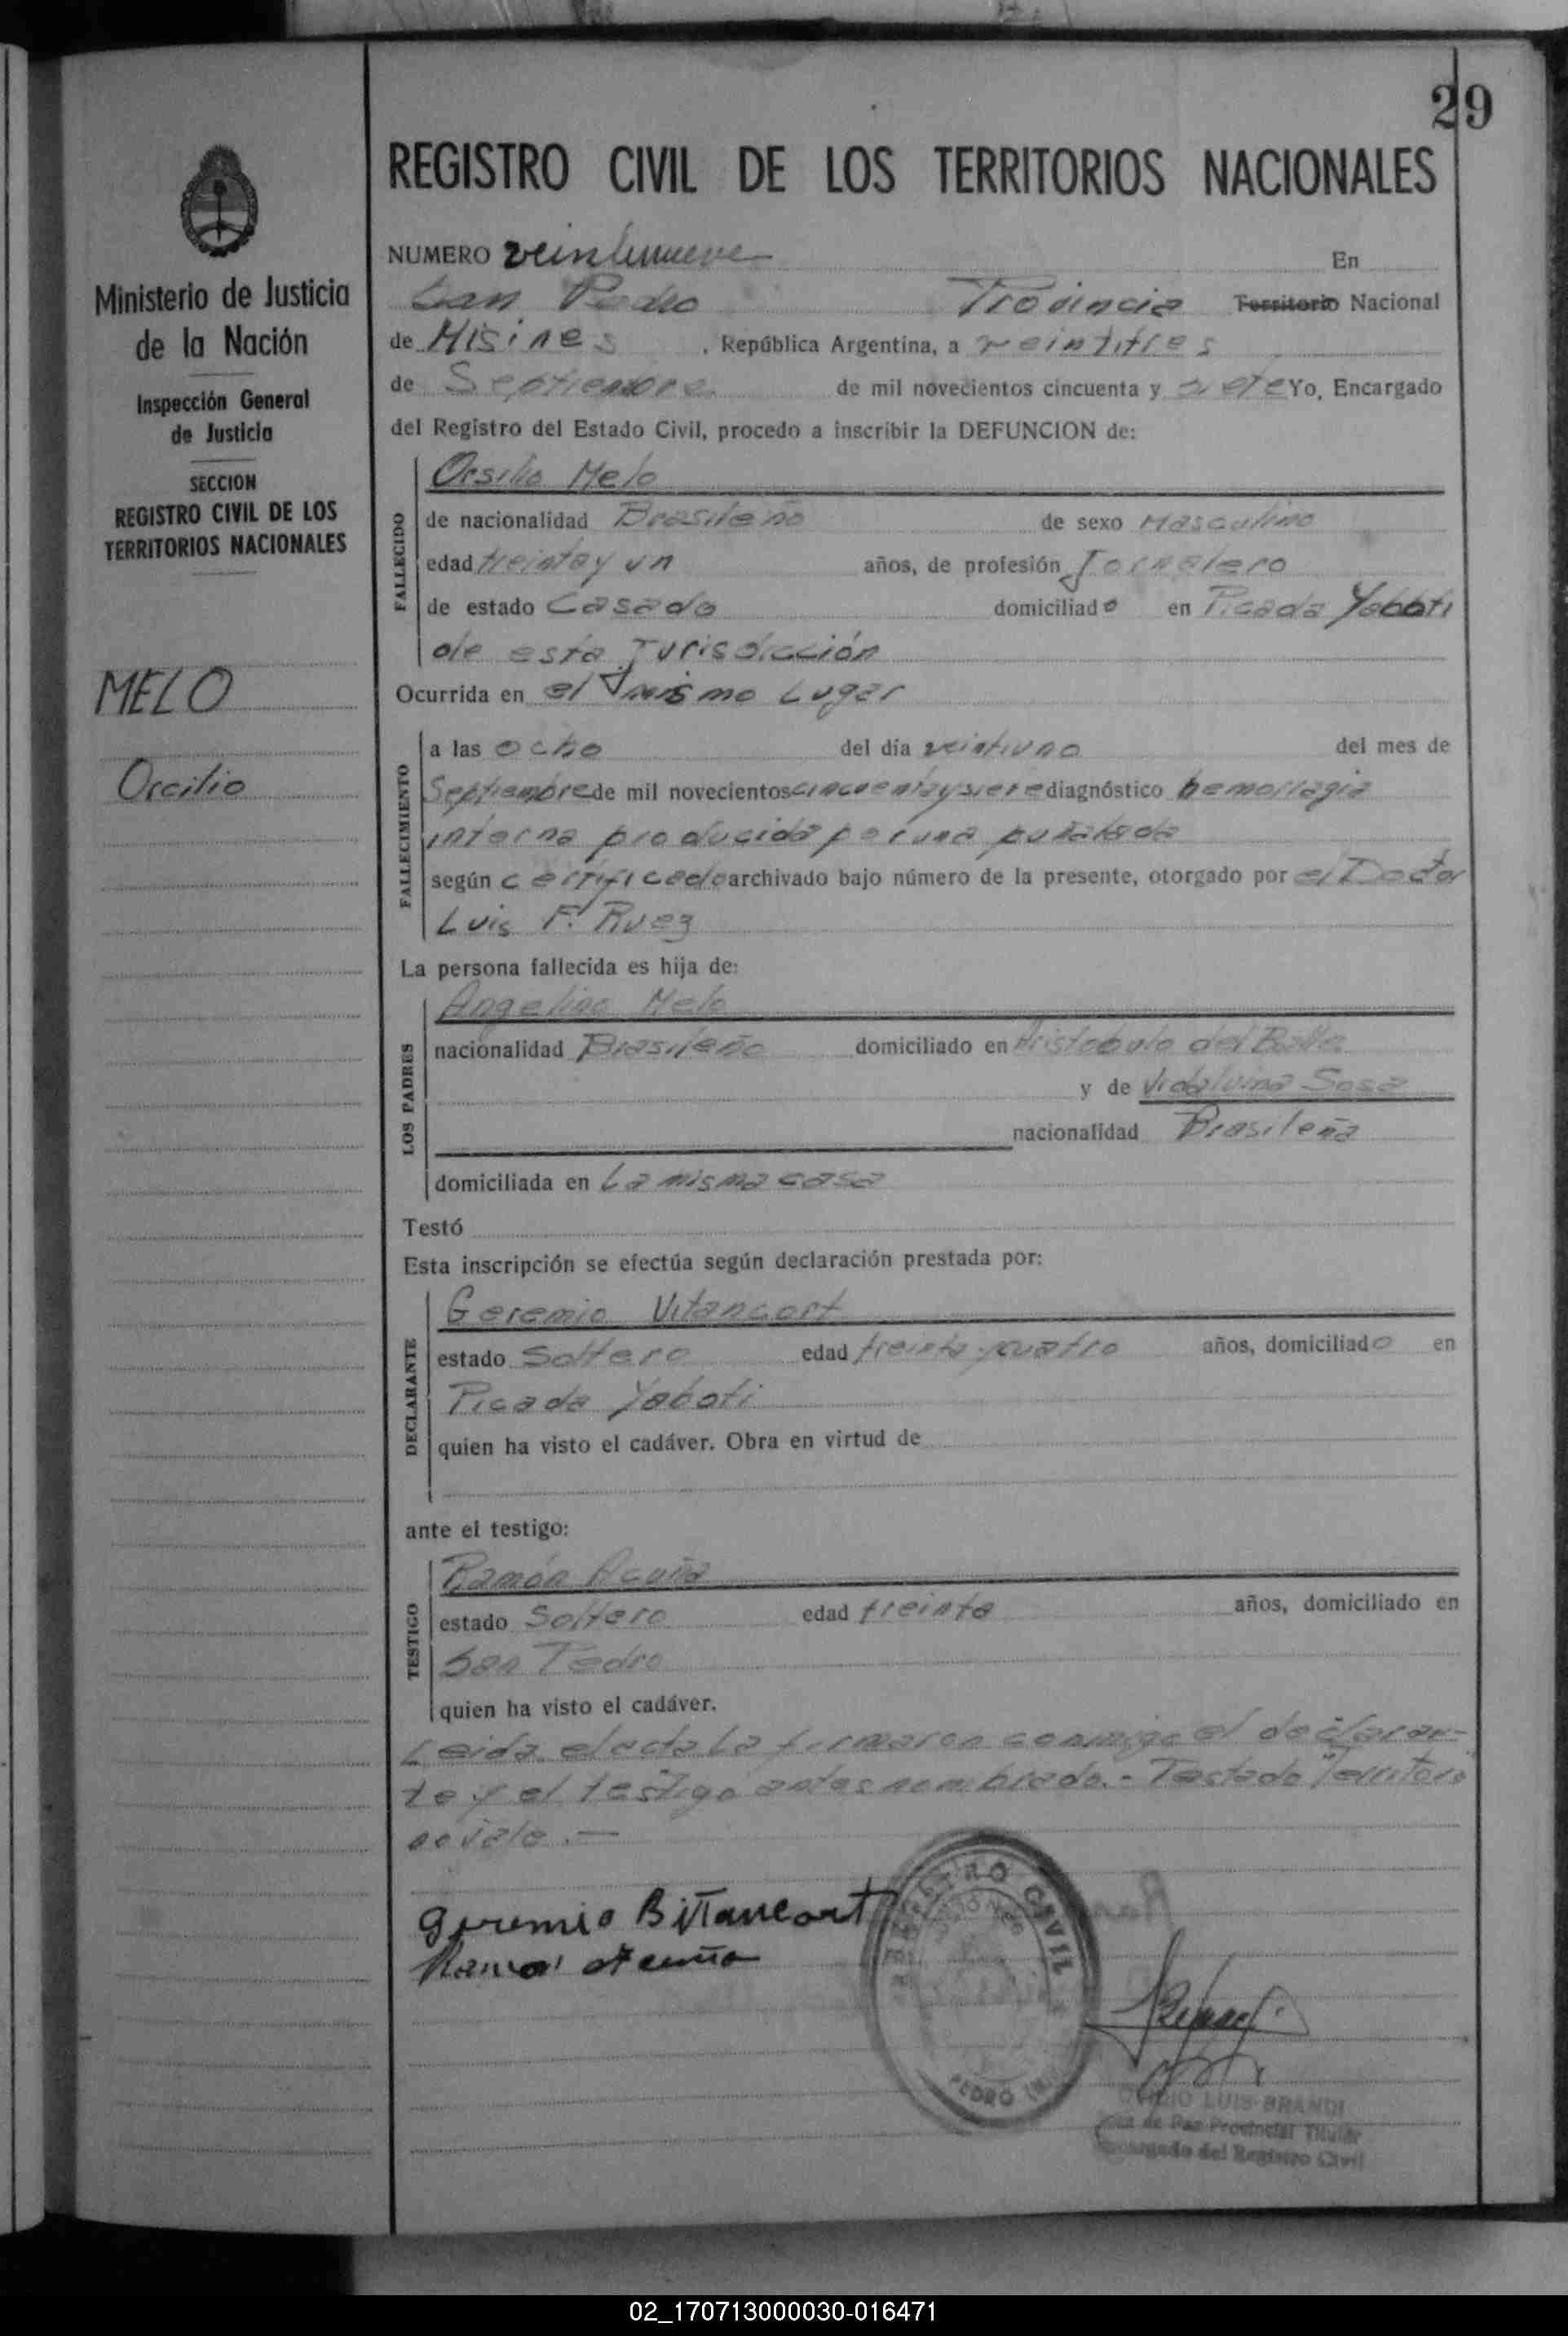 29
REGISTRO CIVIL DE LOS TERRITORIOS NACIONALES
Ministerio de Justicia
de la Nación
Inspección General
de Justicia
SECCION
REGISTRO CIVIL DE LOS
TERRITORIOS NACIONALES
MELO
Orcilio
NUMERO veintinueve En
San Pedro Provincia Territorio Nacional
de Misines, República Argentina, a veintitres
de Septiembre de mil novecientos cincuenta y siete Yo, Encargado
del Registro del Estado Civil, procedo a inscribir la DEFUNCION de:
FALLECIDO
Orsilio Melo
de nacionalidad Brasileño de sexo Masculino
edad treinta y un años, de profesión Jornalero
de estado Casado domiciliado en Picada Yaboti
de esta Jurisdicción
Ocurrida en el mismo Lugar
FALLECIMIENTO
a las ocho del día veintiuno del mes de
Septiembre de mil novecientos cincuenta y siete diagnóstico hemorragia
interna producida por una puñalada
según certificado archivado bajo número de la presente, otorgado por el Doctor
Luis F. Ruez
La persona fallecida es hija de:
LOS PADRES
Angelino Melo
nacionalidad Brasileño domiciliado en Aristobulo del Balle
y de Vidalvina Sosa
nacionalidad Brasileña
domiciliada en La misma casa
Testó
Esta inscripción se efectúa según declaración prestada por:
DECLARANTE
Geremio Vitancort
estado Soltero edad treinta y cuatro años, domiciliado en
Picada Yaboti
quien ha visto el cadáver. Obra en virtud de
ante el testigo:
TESTIGO
Ramón Acuña
estado Soltero edad treinta años, domiciliado en
San Pedro
quien ha visto el cadáver.
Leida el acta La firmaron conmigo el declaran-
te y el testigo antes nombrado.- Testado "Territorio"
no vale.—
Geremio Bittancort
Ramon Acuña
REGISTRO CIVIL
MISIONES
PEDRO
LUIS BRANDI
Juez de Paz Provincial Titular
Encargado del Registro Civil
02_170713000030-016471